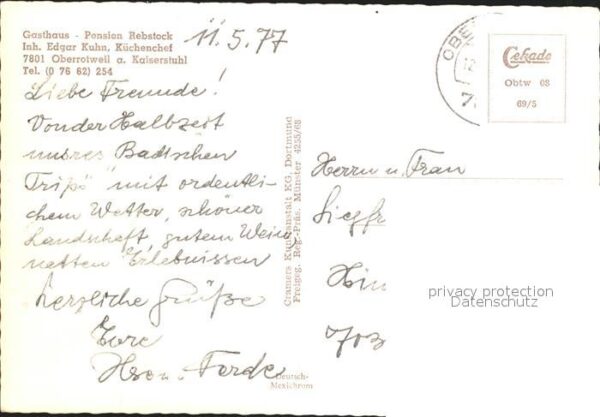 Gasthaus - Pension Rebstock
Inh. Edgar Kuhn, Küchenchef
7801 Oberrotweil a. Kaiserstuhl
Tel. (0 76 62) 254
11.5.77
Liebe Freunde!
Von der Halbzeit
unsres "Badischen
Trips" mit ordentli-
chem Wetter, schöner
Landschaft, gutem Wein,
netten Erlebnissen
herzliche Grüße
Eure
Cramers Kunstanstalt KG, Dortmund
Freigeg. Reg.-Präs. Münster 4255/68
Deutsch-
Mexichrom
OBE
Cekade
Obtw 03
69/5
Herrn u. Frau
Siegfr
Hin
703
privacy protection
Datenschutz